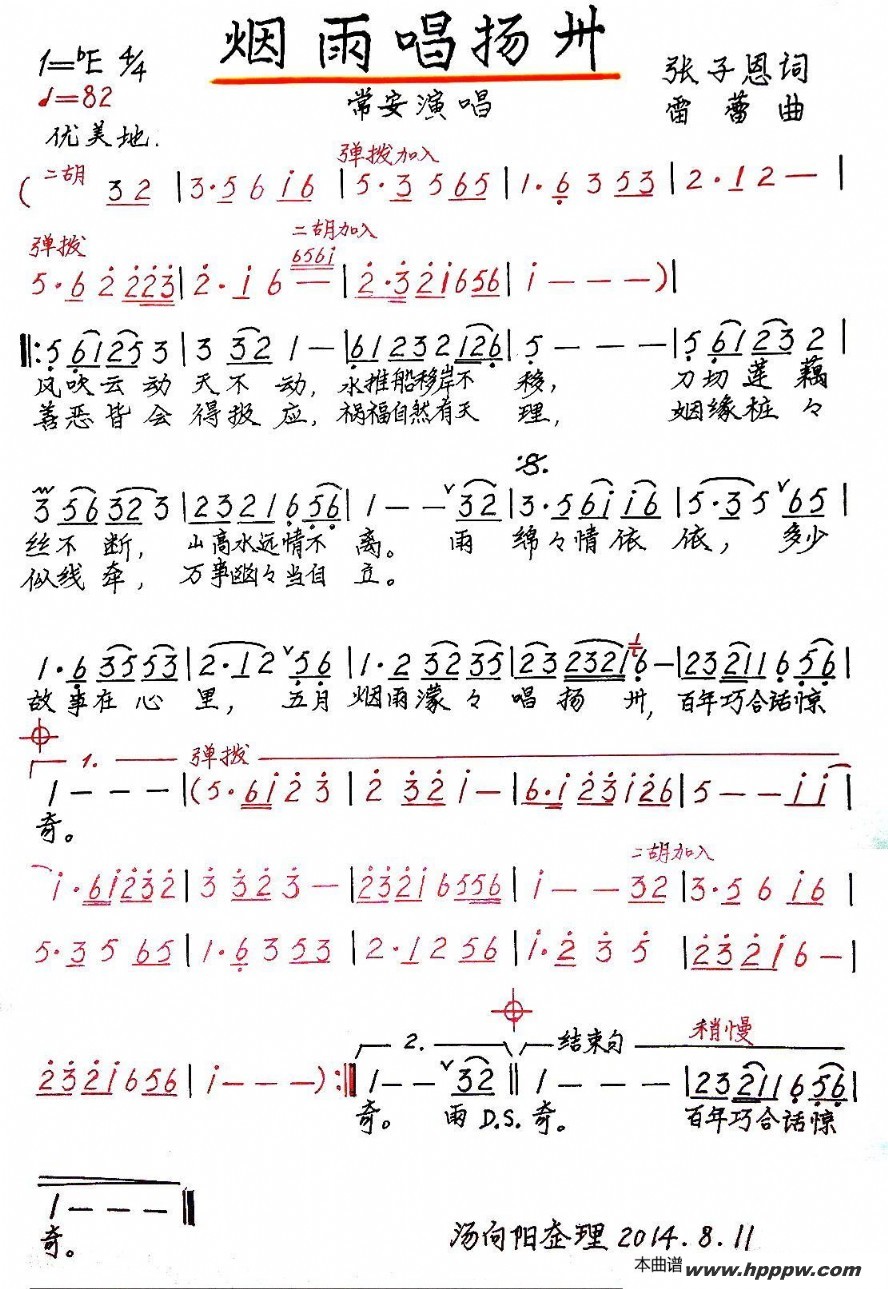 烟雨唱扬州
1=♭E 4/4
♩=82
优美地.
常安演唱
张子恩词
雷蕾曲
弹拨加入
(二胡 3 2 | 3·5 6 i 6 | 5·3 5 6 5 | 1·6 3 5 3 | 2·1 2 — |
弹拨
二胡加入
656i
5·6 2 2 2 3 | 2·i 6 — | 2·3 2 i 6 5 6 | i — — — ) |
‖: 5 6 1 2 5 3 | 3 3 2 1 — | 6 1 2 3 2 1 2 6 | 5 — — — | 5 6 1 2 3 2 |
风吹云动天不动, 水推船移岸不移, 刀切莲藕
善恶皆会得报应, 祸福自然有天理, 姻缘桩々
𝄋.
3 5 6 3 2 3 | 2 3 2 1 6 5 6 | 1 — — ∨ 3 2 | 3·5 6 i i 6 | 5·3 5 ∨ 6 5 |
丝不断, 山高水远情不离。雨绵々情依依, 多少
似线牵, 万事幽々当自立。
1·6 3 5 5 3 | 2·1 2 ∨ 5 6 | 1·2 3 2 3 5 | 2 3 2 3 2 1 6 — | 2 3 2 1 1 6 5 6 |
故事在心里, 五月烟雨濛々唱扬州, 百年巧合话惊
1. 弹拨
1 — — — | (5·6 i 2 3 | 2 3 2 i — | 6·i 2 3 i 2 6 | 5 — — i i |
奇。
二胡加入
i·6 i 2 3 2 | 3 3 2 3 — | 2 3 2 i 6 5 5 6 | i — — 3 2 | 3·5 6 i 6 |
5·3 5 6 5 | 1·6 3 5 3 | 2·1 2 5 6 | i·2 3 5 | 2 3 2 i 6 — |
2. 结束句 稍慢
2 3 2 i 6 5 6 | i — — — ) :‖ 1 — — ∨ 3 2 ‖ 1 — — — | 2 3 2 1 1 6 5 6 |
奇。 雨 D.S. 奇。 百年巧合话惊
1 — — — ‖
奇。
汤向阳整理 2014.8.11
本曲谱 www.hpppw.com